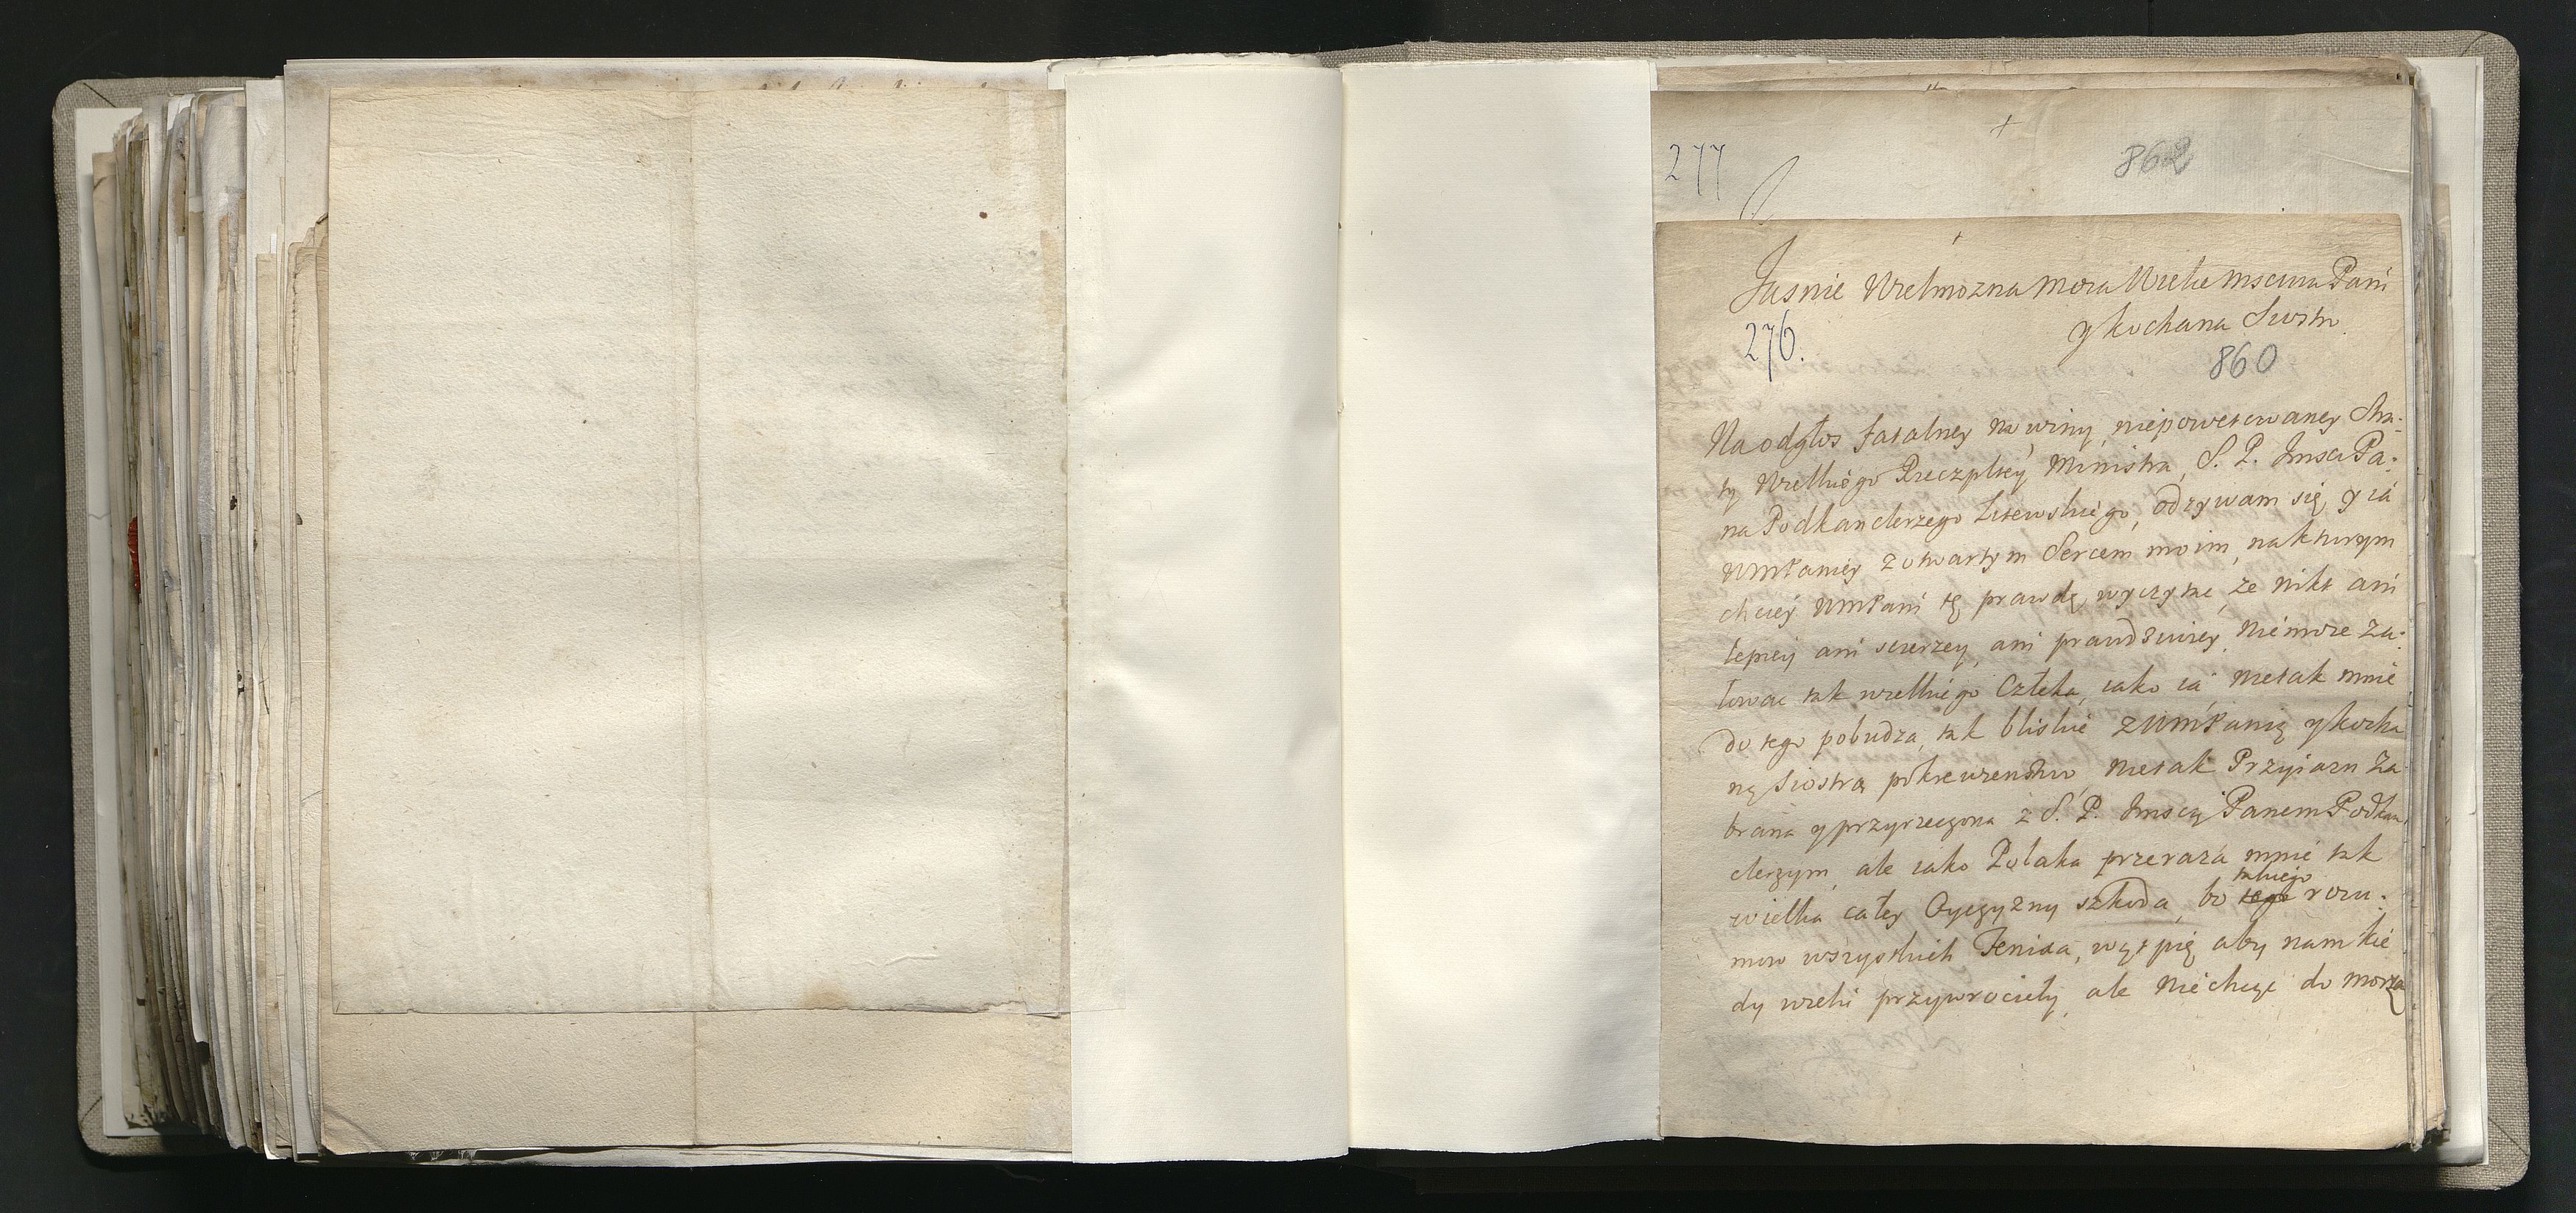 +
862
277
+
Jasnie Wielmozna Mcia Wielce Msciwa Pani
y kochana Siostro
276.
860
Na odgłos fatalney nowiny, niepowetowaney Stra-
ty Wielkiego Rzeczpltey Ministra, S. P. Jmsci Pa-
na Podkanclerzego Litewskiego, odzywam się y ia
WmPaniey z otwartym Sercem moim, na kturym
chciey WmPani tę prawdę wyczytac, ze nikt ani
lepiey ani scierzey, ani prawdziwiey, nie moze ża-
łowac tak wielkiego Człeka, iako ia, nie tak mnie
do tego pobudza, tak bliskie z WmPanią y kocha
ną Siostrą pokrewienstwo, nie tak Przyiazn Za
brana y przyrzeczona z S. P. Jmscią Panem Podkan
clerzym, ale iako Polaka przeraza mnie tak
wielka całey Oyczyzny szkoda, bo tego rozu-
takiego
mow wszystkich Fenixa, wątpię aby nam kie
dy wieki przywrociely, ale nie chcąc do morza